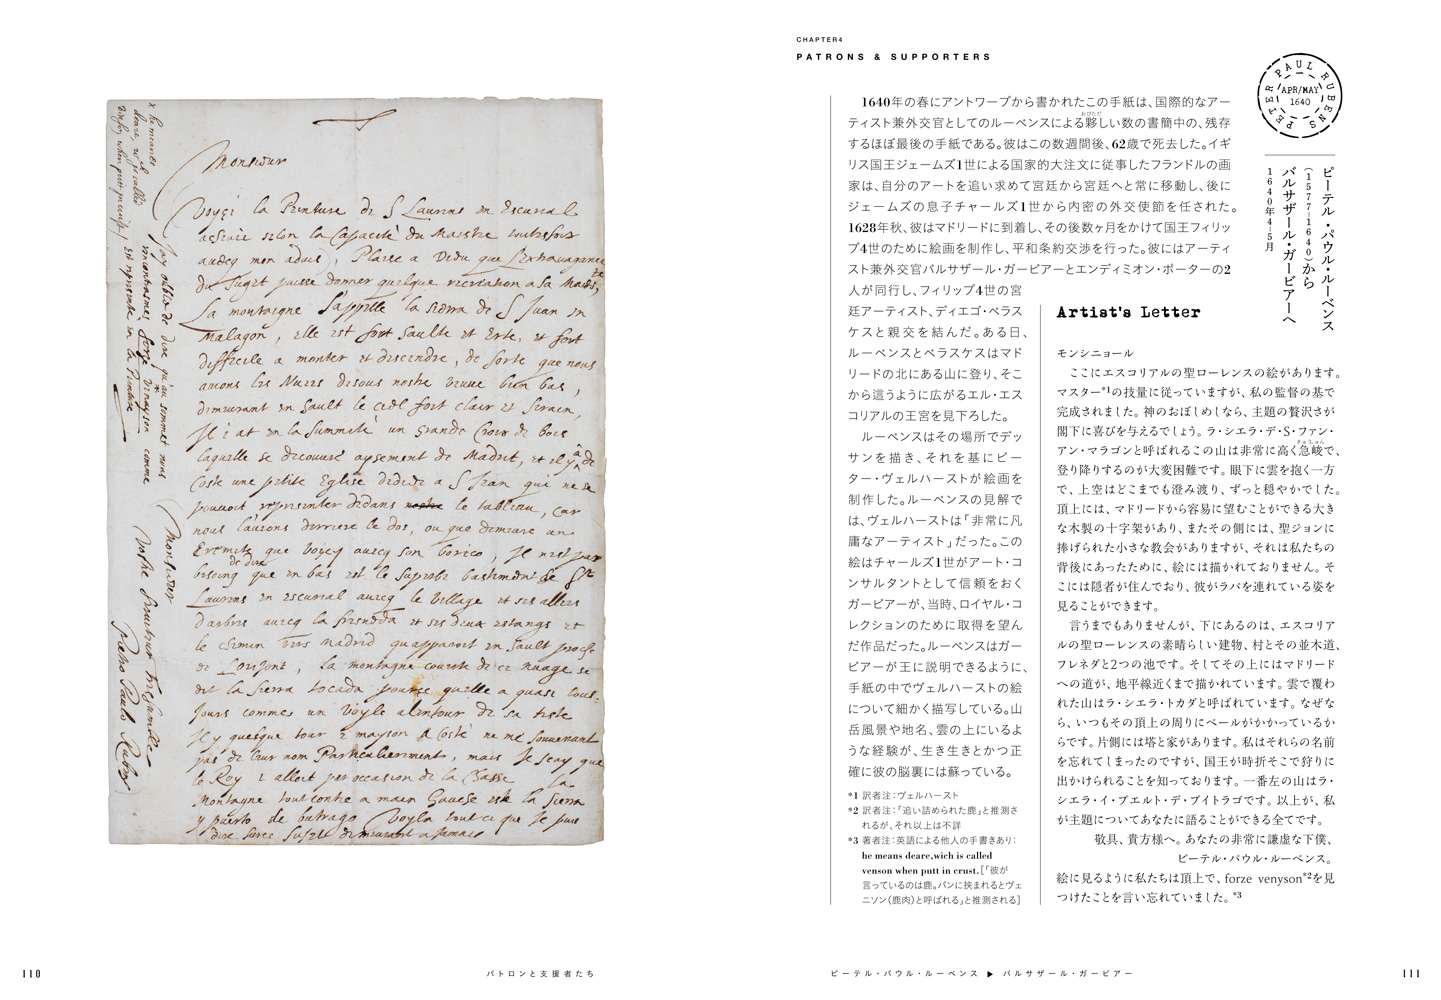 Monsieur
Voyçi la Peinture de S Laurens en Escurial
achevée selon la Capacité du Maistre toutesfois
avecq mon advis, Plaise a Dieu que l'extravagance
du sujet puisse donner quelque recreation a sa Majté,
La montaigne s'appelle la sierra de S Juan en
Malagon, elle est fort haulte et erte, et fort
difficile a monter et descendre, de sorte que nous
avions les Nuees desous nostre veuue bien bas,
demeurant en hault le ciel fort clair et serain,
Il i at en la summité un grande Croix de bois
laquelle se decouvre aysement de Madrit, et il y à de
Coste une petite Eglise dediee a S Jean qui ne se
pouvoit representer dedans le tableau, car
nous l'avions derriere le dos, ou que demeure un
Eremite que voicy avecq son borico, Il n'est pas
besoing de dire que en bas est le superbe bastiment de St
Laurens en escurial avecq le village et ses allees
d'arbres avecq la fresneda et ses deux estangs et
le chemin vers madrid quapparoit en hault proche
de L'orizont, la montagne couverte de ce nuage se
dit la sierra tocada pource quelle a quasi tous-
jours comme un voyle alentour de sa teste
Il y quelque tour e mayson a Costé ne me souvenant
pas de leur nom Particulierment, mais Je scay que
le Roy i alloit per occasion de la Chasse
la Montagne tout contre a main Gauche est la sierra
y puerto de butrago Voyla tout ce que Je puis
dire
demeurant a jamais
Monsieur
Vostre Serviteur tresumble
Pietro Pauolo Rubens
J'ay oublié de dire qu'au sommet nous
rencontrasmes forze venayson comme
est représenté en la Peinture
x he means
deare, wich is called
venson when putt in crust
110
パトロンと支援者たち
CHAPTER4
PATRONS & SUPPORTERS
PETER PAUL RUBENS
APR/MAY
1640
ピーテル・パウル・ルーベンス
(1577–1640)から
バルサザール・ガービアーへ
1640年4–5月
1640年の春にアントワープから書かれたこの手紙は、国際的なアー
ティスト兼外交官としてのルーベンスによる夥しい数の書簡中の、残存
するほぼ最後の手紙である。彼はこの数週間後、62歳で死去した。イギ
リス国王ジェームズ1世による国家的大注文に従事したフランドルの画
家は、自分のアートを追い求めて宮廷から宮廷へと常に移動し、後に
ジェームズの息子チャールズ1世から内密の外交使節を任された。
1628年秋、彼はマドリードに到着し、その後数ヶ月をかけて国王フィリッ
プ4世のために絵画を制作し、平和条約交渉を行った。彼にはアーティ
スト兼外交官バルサザール・ガービアーとエンディミオン・ポーターの2
人が同行し、フィリップ4世の宮
廷アーティスト、ディエゴ・ベラス
ケスと親交を結んだ。ある日、
ルーベンスとベラスケスはマド
リードの北にある山に登り、そこ
から這うように広がるエル・エス
コリアルの王宮を見下ろした。
ルーベンスはその場所でデッ
サンを描き、それを基にピー
ター・ヴェルハーストが絵画を
制作した。ルーベンスの見解で
は、ヴェルハーストは「非常に凡
庸なアーティスト」だった。この
絵はチャールズ1世がアート・コ
ンサルタントとして信頼をおく
ガービアーが、当時、ロイヤル・コ
レクションのために取得を望ん
だ作品だった。ルーベンスはガー
ビアーが王に説明できるように、
手紙の中でヴェルハーストの絵
について細かく描写している。山
岳風景や地名、雲の上にいるよ
うな経験が、生き生きとかつ正
確に彼の脳裏には蘇っている。
*1 訳者注：ヴェルハースト
*2 訳者注：「追い詰められた鹿」と推測さ
れるが、それ以上は不詳
*3 著者注：英語による他人の手書きあり：
he means deare,wich is called
venson when putt in crust.［「彼が
言っているのは鹿。パンに挟まれるとヴェ
ニソン（鹿肉）と呼ばれる」と推測される］
Artist's Letter
モンシニョール
ここにエスコリアルの聖ローレンスの絵があります。
マスター*1の技量に従っていますが、私の監督の基で
完成されました。神のおぼしめしなら、主題の贅沢さが
閣下に喜びを与えるでしょう。ラ・シエラ・デ・S・ファン・
アン・マラゴンと呼ばれるこの山は非常に高く急峻で、
登り降りするのが大変困難です。眼下に雲を抱く一方
で、上空はどこまでも澄み渡り、ずっと穏やかでした。
頂上には、マドリードから容易に望むことができる大き
な木製の十字架があり、またその側には、聖ジョンに
捧げられた小さな教会がありますが、それは私たちの
背後にあったために、絵には描かれておりません。そ
こには隠者が住んでおり、彼がラバを連れている姿を
見ることができます。
言うまでもありませんが、下にあるのは、エスコリア
ルの聖ローレンスの素晴らしい建物、村とその並木道、
フレネダと2つの池です。そしてその上にはマドリード
への道が、地平線近くまで描かれています。雲で覆わ
れた山はラ・シエラ・トカダと呼ばれています。なぜな
ら、いつもその頂上の周りにベールがかかっているか
らです。片側には塔と家があります。私はそれらの名前
を忘れてしまったのですが、国王が時折そこで狩りに
出かけられることを知っております。一番左の山はラ・
シエラ・イ・プエルト・デ・ブイトラゴです。以上が、私
が主題についてあなたに語ることができる全てです。
敬具、貴方様へ。あなたの非常に謙虚な下僕、
ピーテル・パウル・ルーベンス。
絵に見るように私たちは頂上で、forze venyson*2を見
つけたことを言い忘れていました。*3
ピーテル・パウル・ルーベンス ▶ バルサザール・ガービアー
111